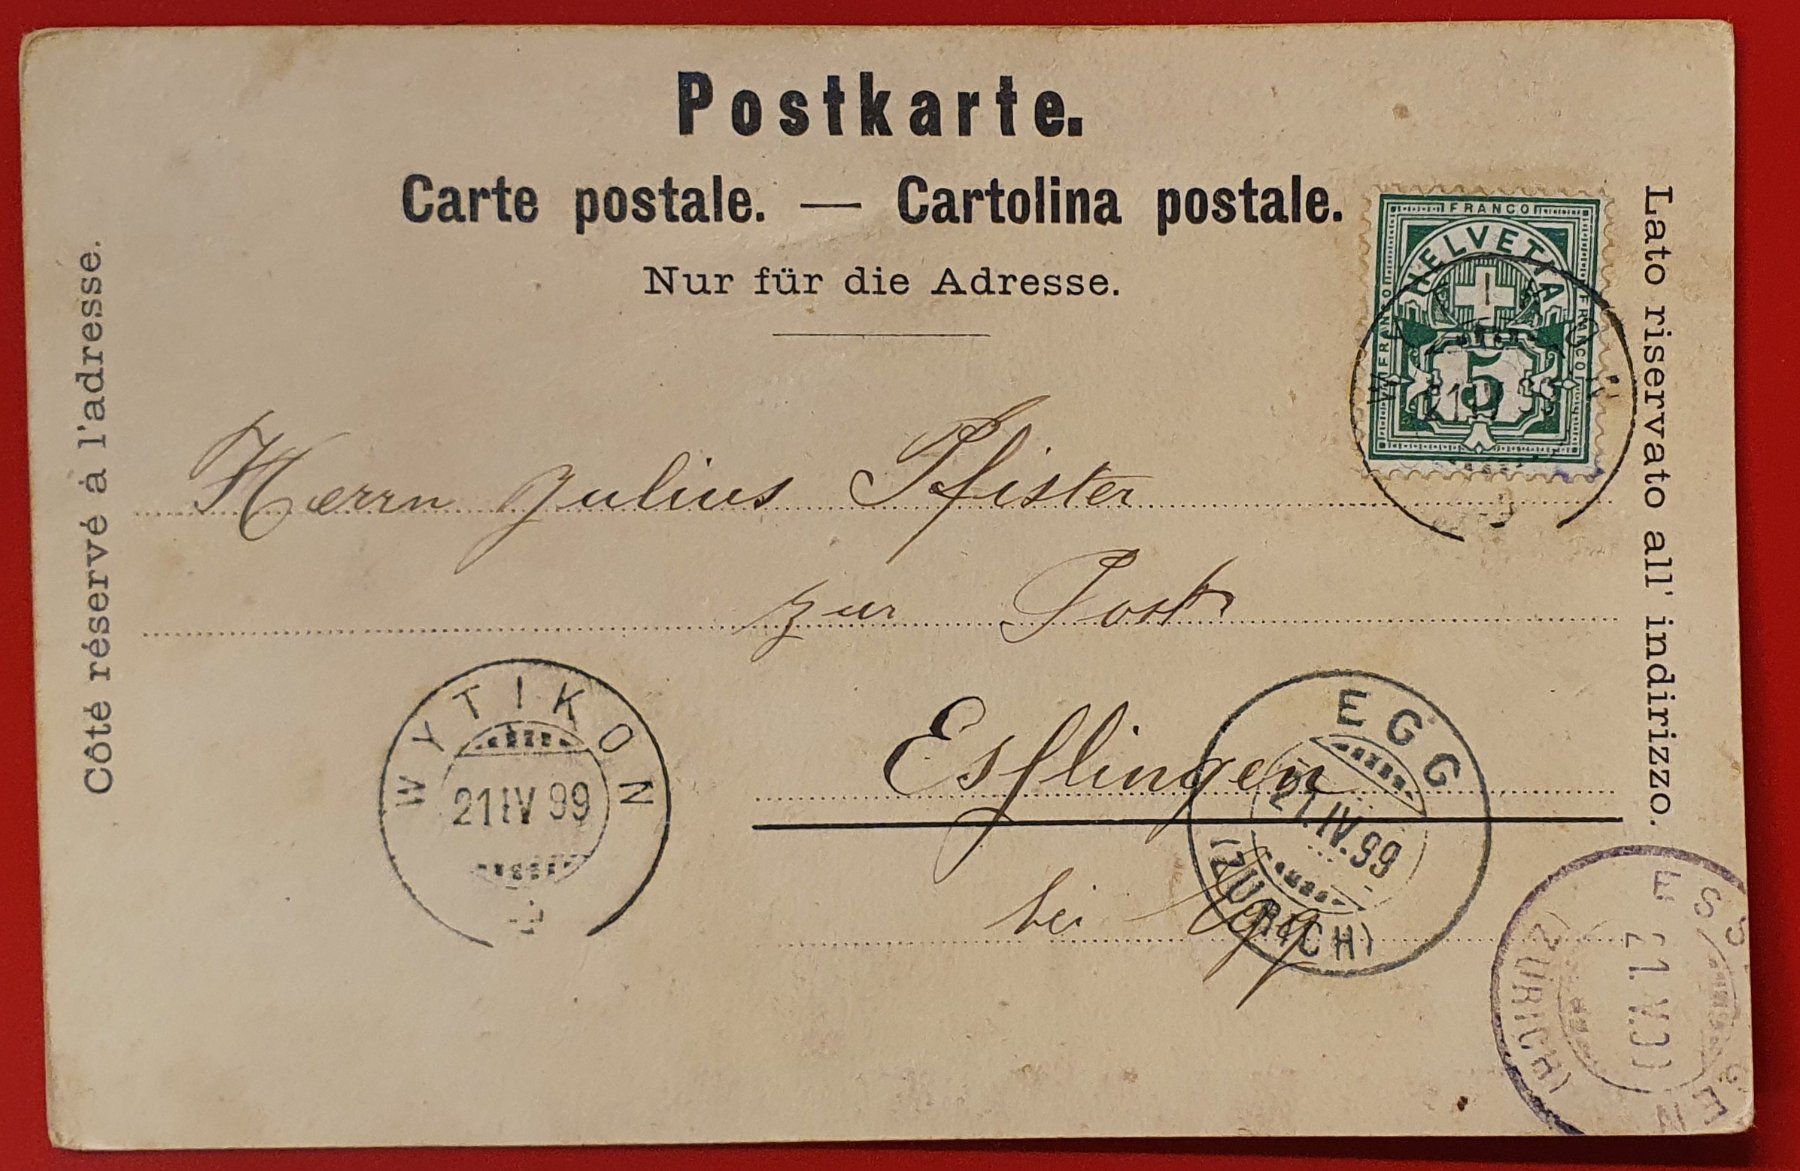 Postkarte.
Carte postale. — Cartolina postale.
Nur für die Adresse.
Côté réservé à l'adresse.
Lato riservato all' indirizzo.
FRANCO
FRANCO
FRANCO
HELVETIA
5
Herrn Julius Pfister
zur Post
Esslingen
bei Egg
WYTIKON
21 IV 99
EGG
21.IV.99
(ZÜRICH)
(ZÜRICH)